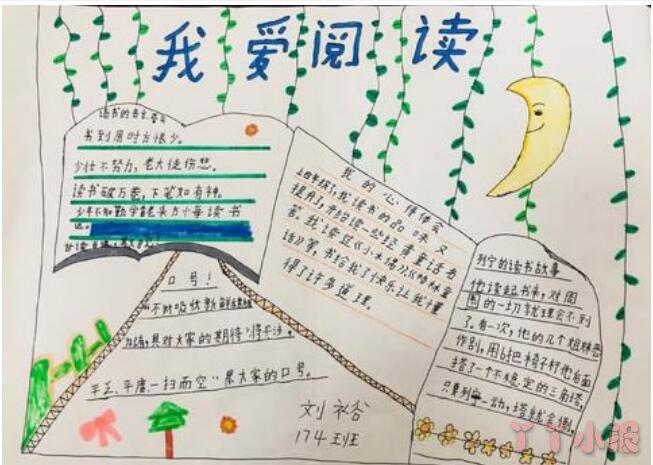 我爱阅读
读书的名言
书到用时方恨少。
少壮不努力,老大徒伤悲。
读书破万卷,下笔如有神。
少年不知勤学苦老来方
读书
迟。
口号!
"不断吸收新鲜
具对大家的期待"将于
平平庸一扫而空"累大家的口号。
我的心得体会
上四年级了,我读书的品味又
提升了,开始读一些经
童话
答。我读过《小木偶》《格林童
话》等,书给我了快乐让我懂
得了许多道理。
列宁的读书故事
他读起书来,对周
围的一切就理会不到
了。有一次,他的几个姐妹恶
作剧,用6把椅子在他后面
搭了一个不稳定的三角塔,
只要列宁一动,塔就会倒,
刘裕
174班
丫丫小报